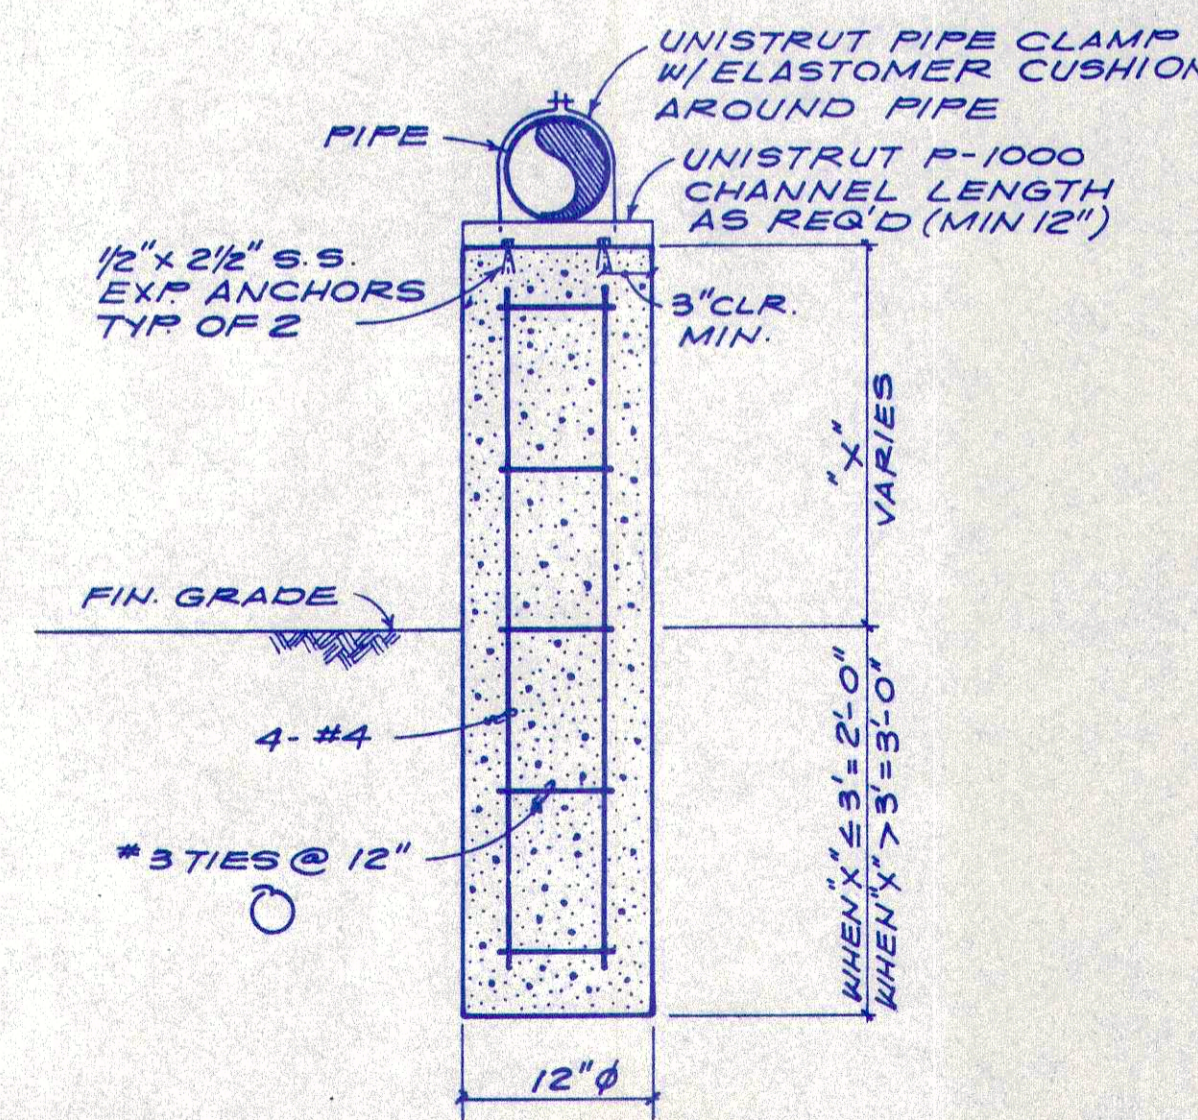 UNISTRUT PIPE CLAMP
W/ELASTOMER CUSHION
AROUND PIPE
PIPE
UNISTRUT P-1000
CHANNEL LENGTH
AS REQ'D (MIN 12")
1/2" X 2 1/2" S.S.
EXP. ANCHORS
TYP OF 2
3" CLR.
MIN.
"X"
VARIES
FIN. GRADE
4- #4
#3 TIES @ 12"
WHEN "X" ≤ 3' = 2'-0"
WHEN "X" > 3' = 3'-0"
12" ϕ